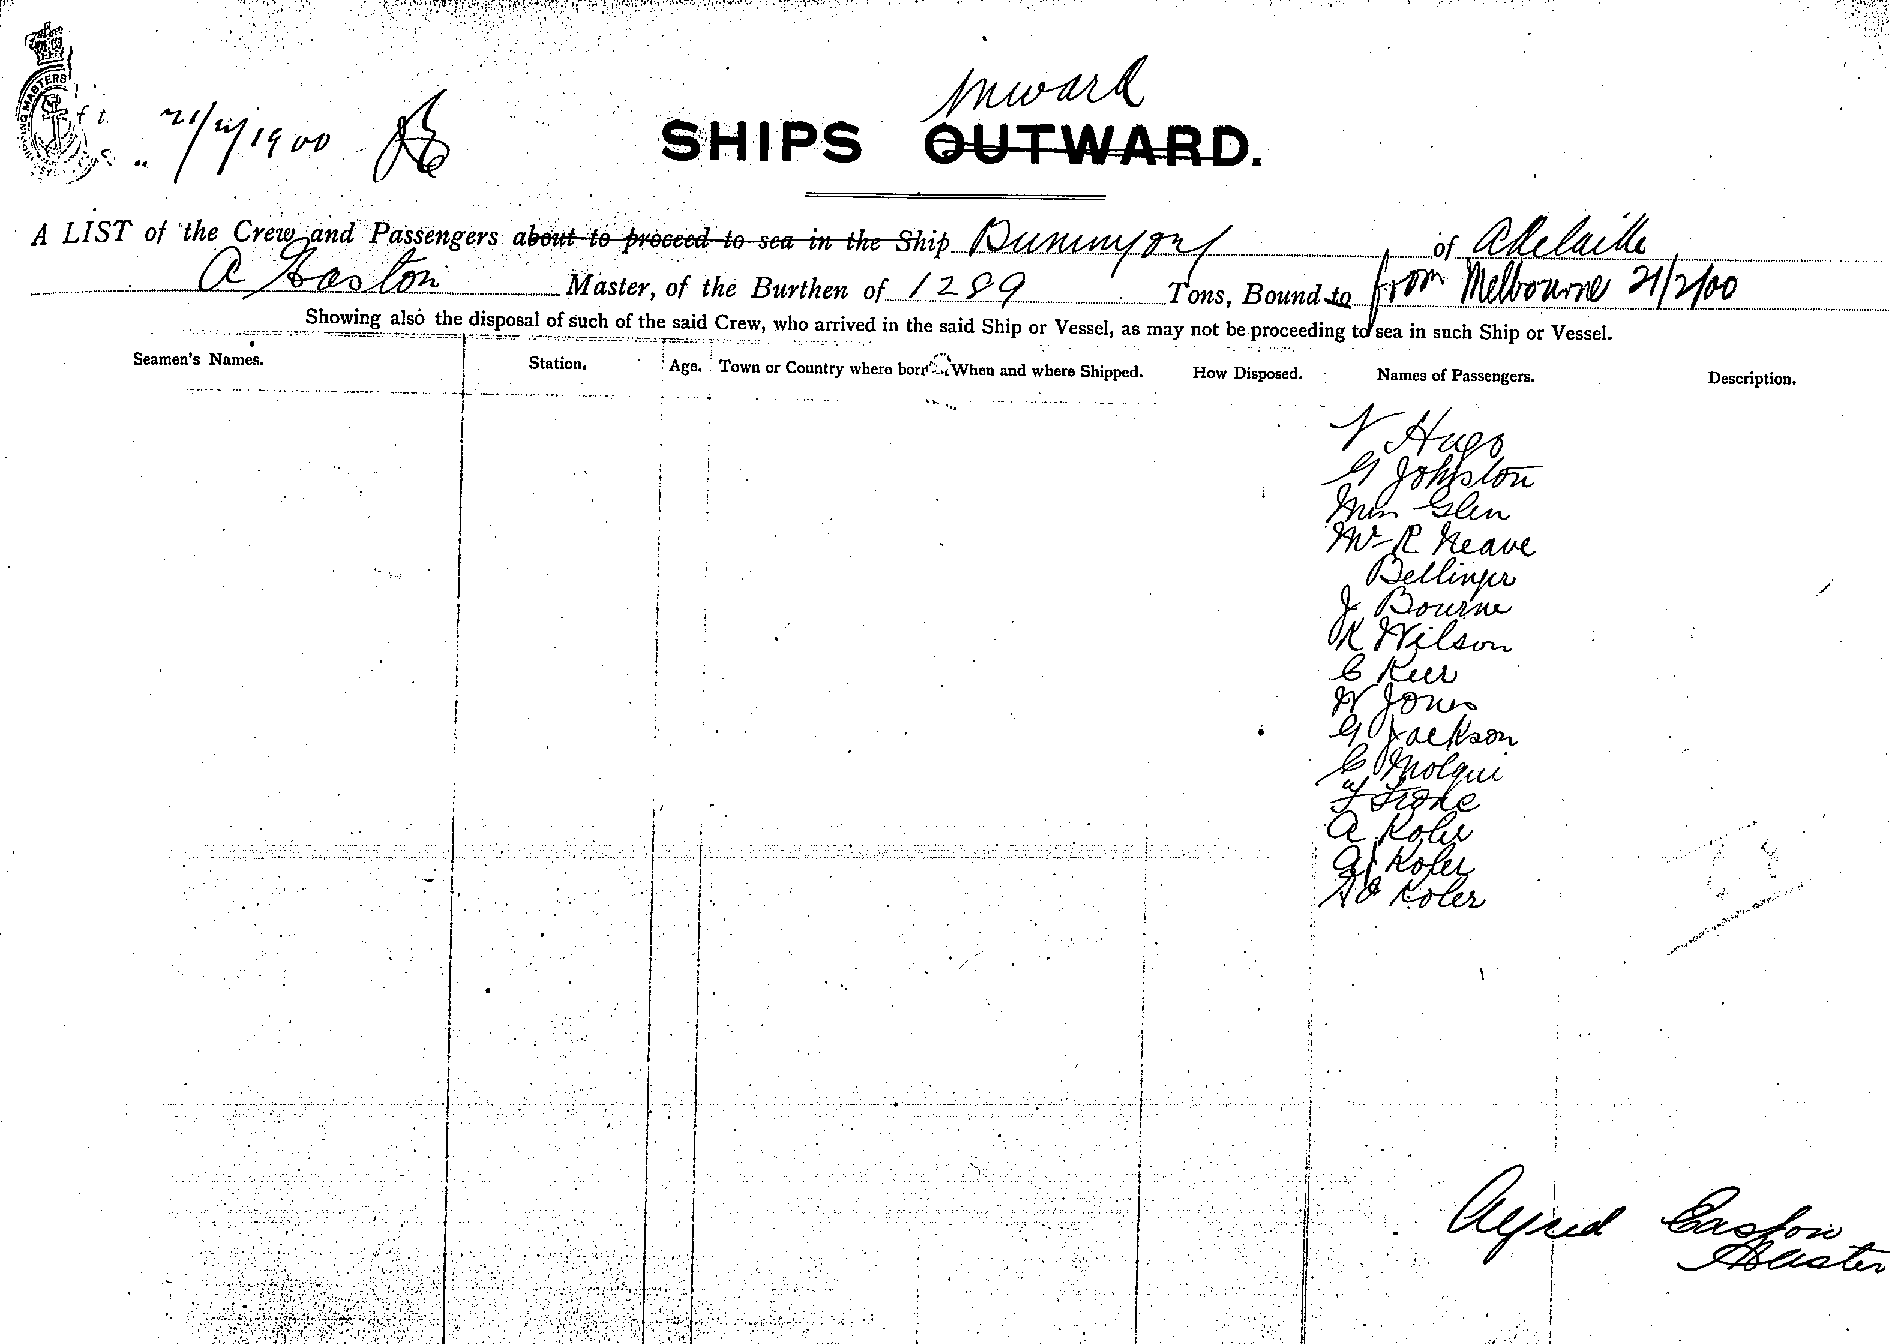 Inward
21/2/1900
SHIPS OUTWARD.
A LIST of the Crew and Passengers about to proceed to sea in the Ship Buninyong of Adelaide
A Easton Master, of the Burthen of 1289 Tons, Bound to from Melbourne 21/2/00
Showing also the disposal of such of the said Crew, who arrived in the said Ship or Vessel, as may not be proceeding to sea in such Ship or Vessel.
Seamen's Names. Station. Age. Town or Country where born When and where Shipped. How Disposed. Names of Passengers. Description.
V Hugo
G Johnston
Miss Glen
Mr R Neave
Bellinger
J Bourne
R Wilson
C Kerr
W Jones
G Jackson
C Molqui
A Koler
Koler
Koler
Alfred Easton
Master